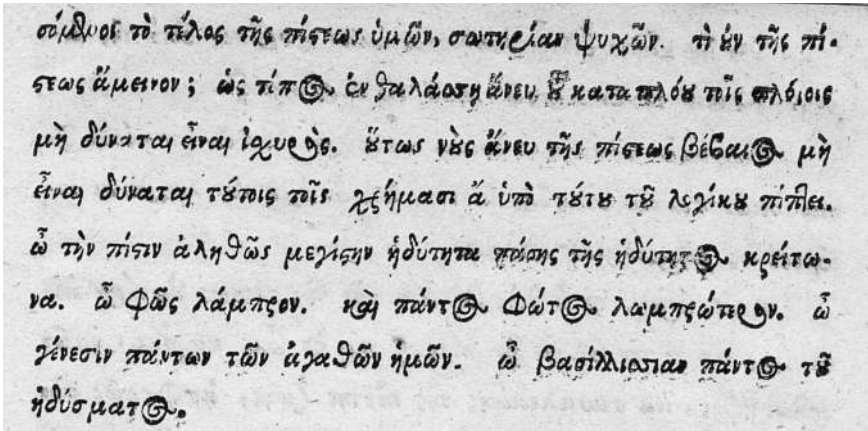 σόμενοι τὸ τέλος τῆς πίστεως ὑμῶν, σωτηρίαν ψυχῶν. τὶ οὖν τῆς πί-
στεως ἄμεινον; ὡς τίπος ἐν θαλάσσῃ ἄνευ τοῦ καταπλόου τοῖς πλόιοις
μὴ δύναται εἶναι ἰχυρὸς. οὕτως νοὺς ἄνευ τῆς πίστεως βέβαιος μὴ
εἶναι δύναται τούτοις τοῖς χρήμασι ἃ ὑπὸ τούτου τοῦ λεγίκου πίπτει.
ὦ τὴν πίστιν ἀληθῶς μεγίστην ἡδύτητα πάσης τῆς ἡδύτητος κρείτω-
να. ὦ φῶς λάμπρον. καὶ πάντος φώτος λαμπρώτερον. ὦ
γένεσιν πάντων τῶν ἀγαθῶν ἡμῶν. ὦ βασίλλισσαν πάντος τοῦ
ἡδύσματος.